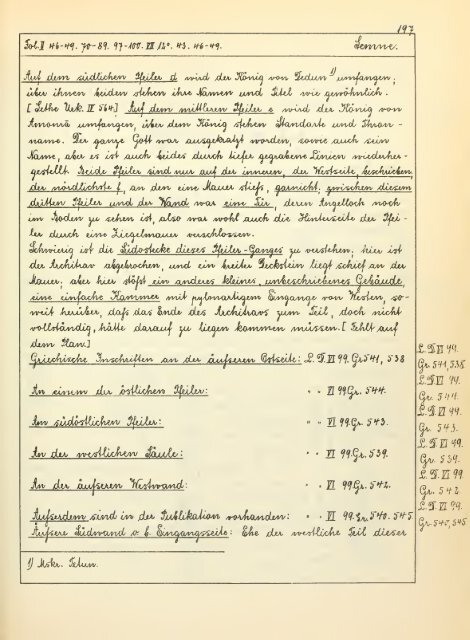 197
Fol. II 46-49. 70-89. 97-100. VII 12°. 43. 46-49. Semne.
Auf dem südlichen Pfeiler d wird der König von Dedun ¹) umfangen;
über ihnen beiden stehen ihre Namen und Titel wie gewöhnlich.
[Sethe Urk. IV 564] Auf dem mittleren Pfeiler e wird der König von
Amonrâ umfangen, über dem König stehen Standarte und Thron-
name. Der ganze Gott war ausgekratzt worden, sowie auch sein
Name, aber es ist auch beides durch tiefer gegrabene Linien wiederher-
gestellt. Beide Pfeiler sind nur auf der inneren, der Westseite, beschrieben,
der nördlichste f, an den eine Mauer stieß, garnicht; zwischen diesem
dritten Pfeiler und der Wand war eine Tür, deren Angelloch noch
im Boden zu sehen ist, also war wohl auch die Hinterseite der Pfei-
ler durch eine Ziegelmauer verschlossen.
Schwierig ist die Südostecke dieses Pfeiler-Ganges zu verstehen; hier ist
der Architrav abgebrochen, und ein breiter Deckstein liegt schief an der
Mauer; aber hier stößt ein anderes kleines, unbeschriebenes Gebäude,
eine einfache Kammer mit pylonartigem Eingange von Westen, so-
weit herüber, daß das Ende des Architravs zum Teil, doch nicht
vollständig, hätte darauf zu liegen kommen müssen. [Fehlt auf
dem Plan.]
Griechische Inschriften an der äußeren Ostseite: L. D. VI 99. Gr 541, 538
L. D. VI 99.
Gr. 541, 538
An einem der östlichen Pfeiler: " " VI 99 Gr. 544.
L. D. VI 99.
Gr. 544.
Am südöstlichen Pfeiler: " " VI 99 Gr. 543.
L. D. VI 99.
Gr. 543.
An der westlichen Säule: " " VI 99 Gr. 539.
L. D. VI 99.
Gr. 539.
An der äußeren Westwand: " " VI 99. Gr. 542.
L. D. VI 99
Gr. 542
Außerdem sind in der Publikation vorhanden: " " VI 99. Gr. 540. 545.
L. D. VI 99.
Gr 545, 545
Äußere Südwand v. b. Eingangsseite: Ehe der westliche Teil dieser
¹) Mskr. Tetun.